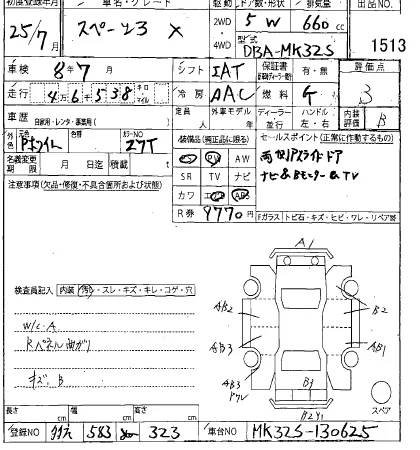 初度登録年月 車名・グレード 駆動 ドア数・形状 排気量 出品NO
25/7月 スペーシア X 2WD 4WD 5 W 660 cc
型式 DBA-MK32S 1513
車検 8年7月 シフト IAT 保証書 有・無 評価点
走行 4万6千538 キロ マイル 冷房 AAC 燃料 G 3
車歴 自家用・レンタ・事業用( ) 定員 人 外車モデル 年 ディーラー 並行 ハンドル 左・右 内装評価 B
外色 Pホワイト 色替 カラーNO Z7T 装備品(純正品に限る) セールスポイント(正常に作動するもの)
PS PW AW 両側Pスライドドア
名義変更期限 月 日迄 積載 t SR TV ナビ ナビ&Bモニター&TV
注意事項(欠品・修復・不具合箇所及び状態) カワ エアB ABS
R券 9770円 Fガラス トビ石・キズ・ヒビ・ワレ・リペア跡
検査員記入 内装 汚・スレ・キズ・キレ・コゲ・穴
A1
AB2 B2
W/C・A
AB3 AB1
Rパネル曲ガリ
キズ、B
AB3
B1
B2Y1 スペア
長さ cm 幅 cm 高さ cm
登録NO 583 323 車台NO MK32S-130625